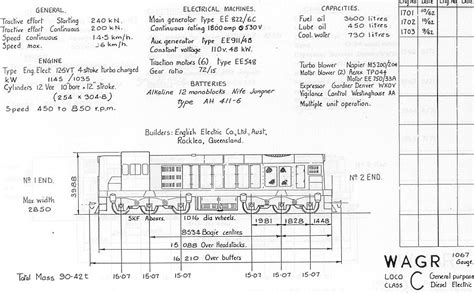 GENERAL.
Tractive effort Starting 240 KN.
Tractive effort Continuous 200 KN.
Speed continuous 14.5 km/h.
Speed max.
ENGINE
Type Eng Elect. 12SVT 4 stroke turbo charged
KW 1145 / 1055
Cylinders 12 Vee 10" bore x 12" stroke
(254 x 304.8)
Speed 450 to 850 r.p.m.
ELECTRICAL MACHINES.
Main generator type EE 822/6C
Continuous rating 1800 amp @ 530V
Aux generator type EE 911/4B
Constant voltage 110v. 48 kW.
Traction motors (6) Type EE 548
Gear ratio 72/15
BATTERIES
Alkaline 12 monoblocks Nife Jungner
type AH 411-6
CAPACITIES.
Fuel oil 3600 litres
Lube oil 450 litres
Cool water 730 litres
Turbo blower Napier MS200/204
Motor blower (2) Aerex TP044
Motor EE 750/33A
Expressor Gardner Denver WXOV
Vigilance Control Westinghouse AA
Multiple unit operation.
1701 10/62
1702
1703
Builders: English Electric Co, Ltd, Aust,
Rocklea, Queensland.
No 1 END.
No 2 END.
3988
Max width
2850
SKF Axboxes.
1016 dia wheels.
1981 1828 1448
8534 Bogie centres
15 088 Over Headstocks.
16 210 Over buffers
Total Mass 90.42 t
15.07 15.07 15.07 15.07 15.07 15.07
WAGR 1067 Gauge.
LOCO CLASS C General purpose Diesel Electric